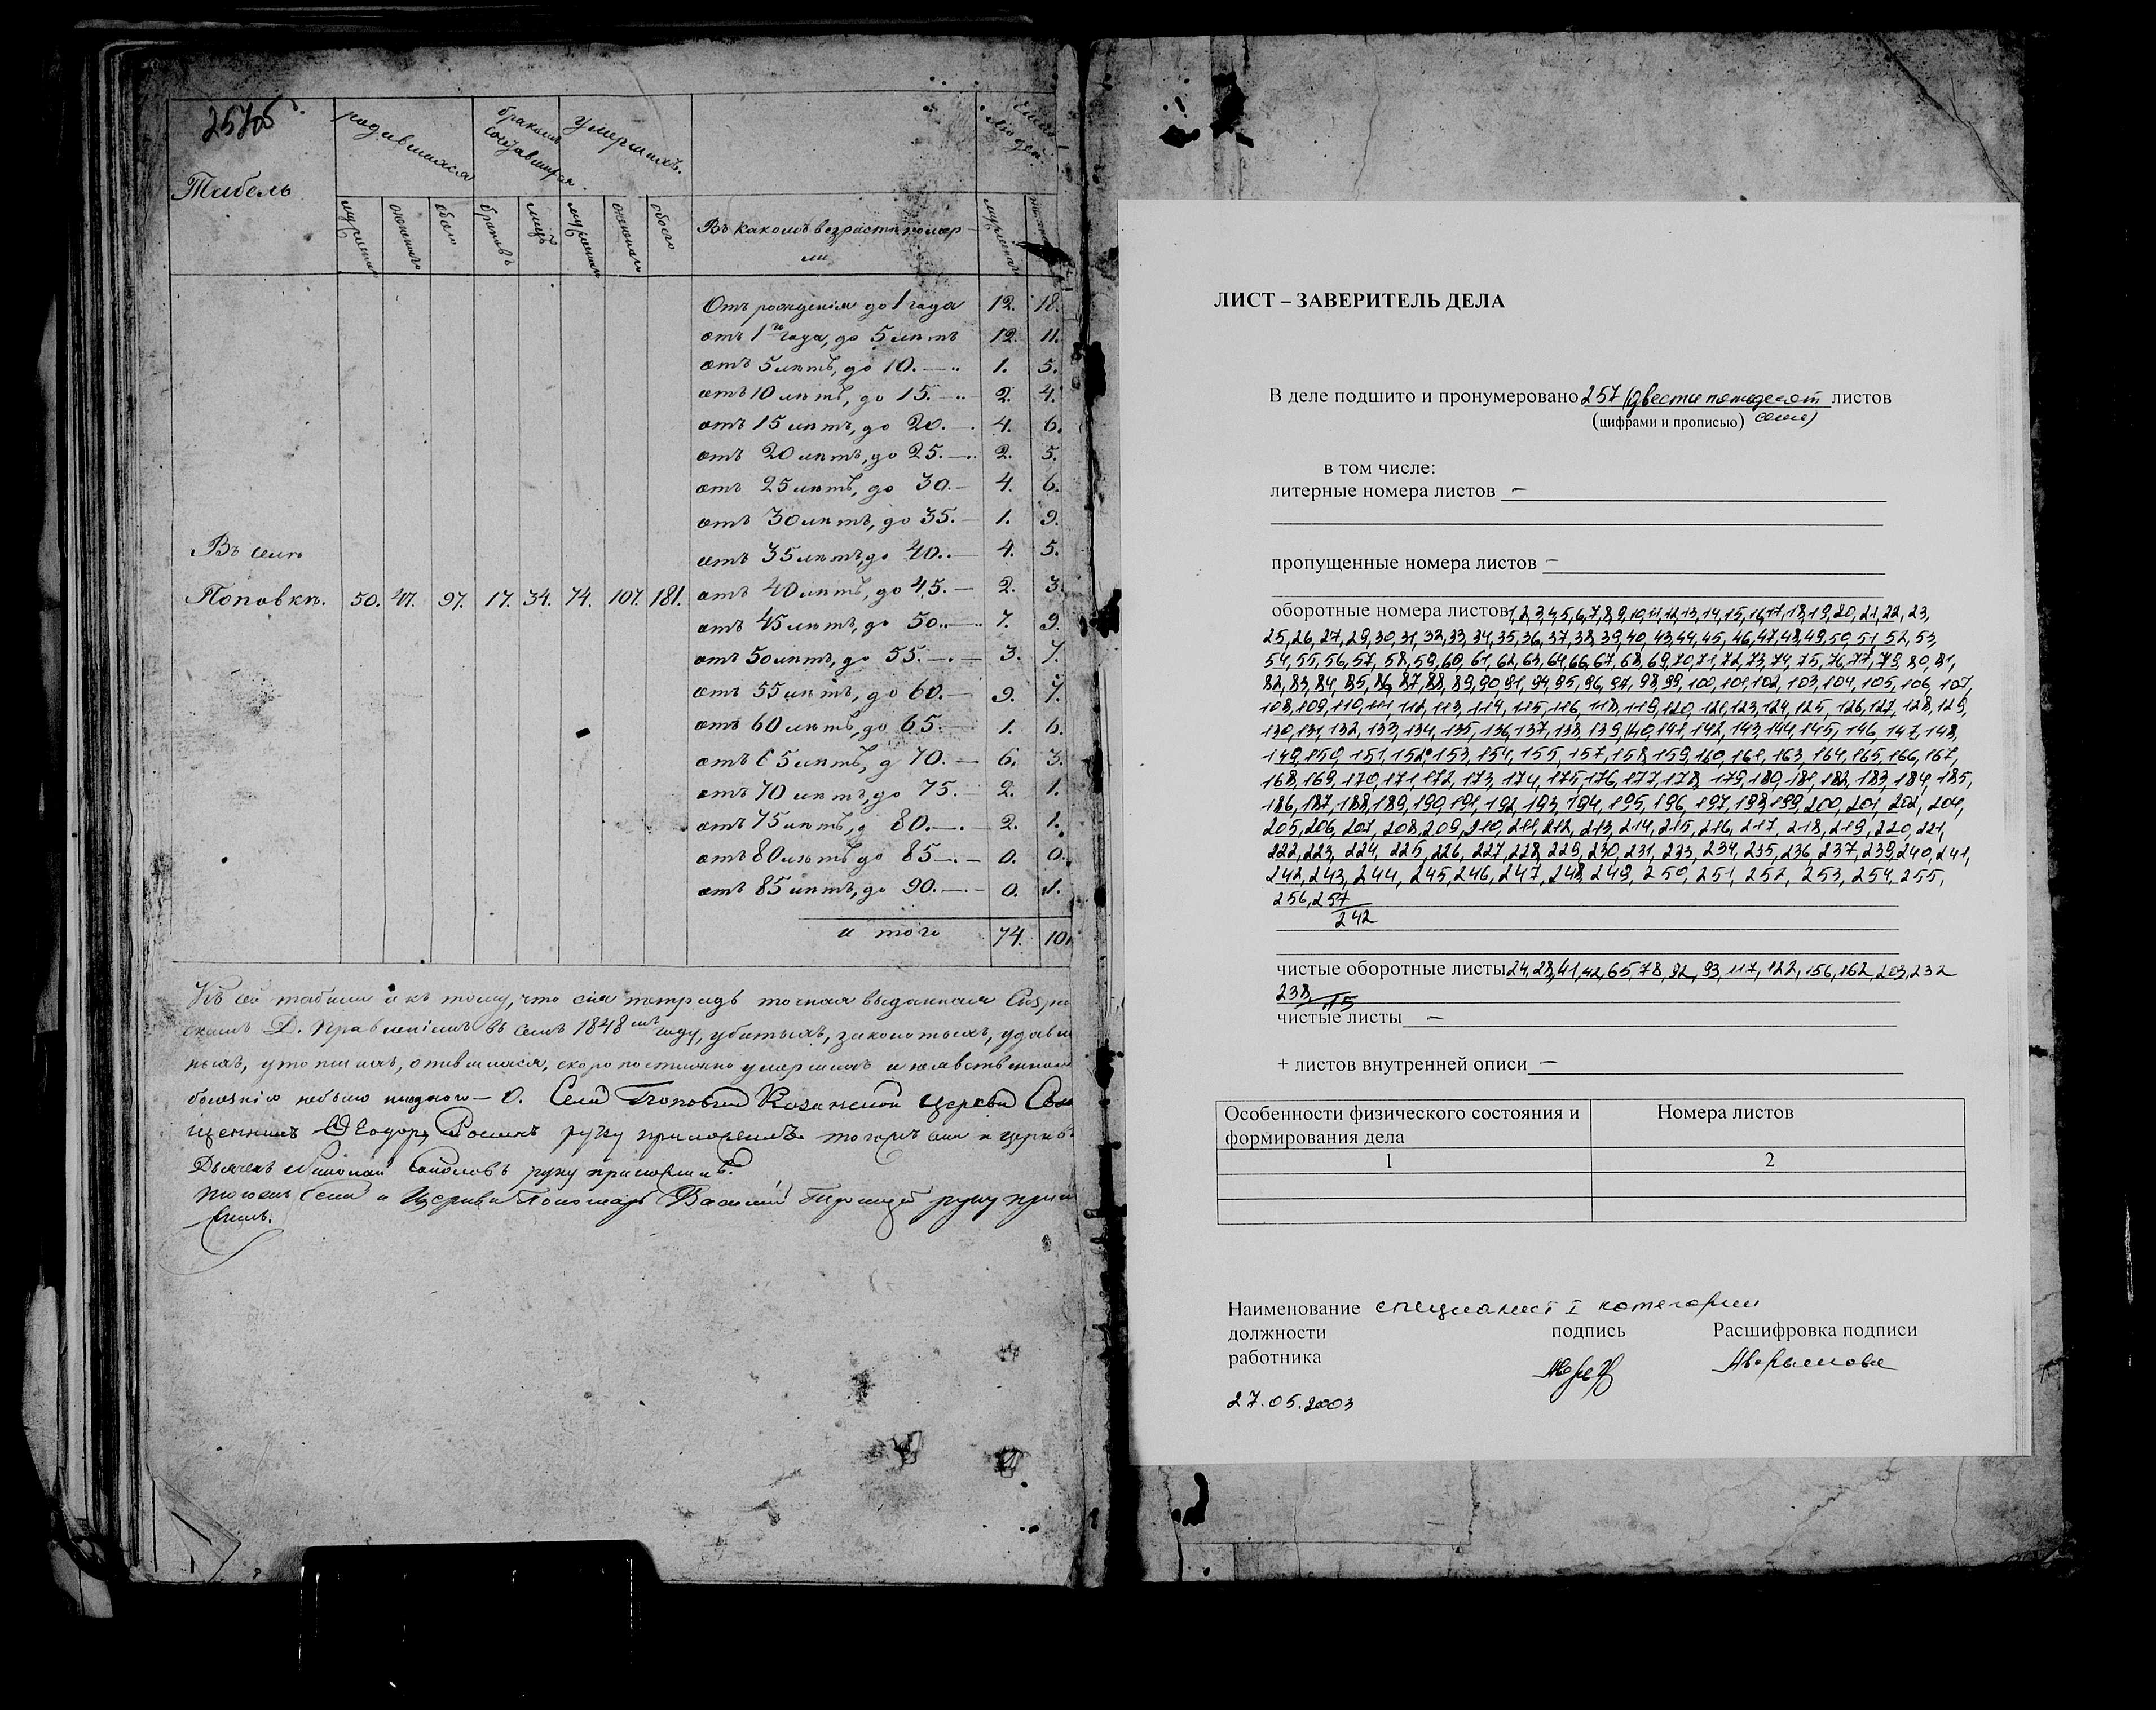 257об
Табель
родившихся
бракомъ сочетавшихся.
умершихъ.
Число людей.
мужеска
женскаго
обоего
браковъ
лицъ
мужеска
женскаго
обоего
Въ какомъ возрасте помер-
ли
мужескаго
Отъ рожденія до 1 года 12. 18.
отъ 1го года, до 5 летъ 12. 11.
отъ 5 летъ, до 10. — 1. 5.
отъ 10 летъ, до 15. — 2. 4.
отъ 15 летъ, до 20. — 4. 6.
отъ 20 летъ, до 25. — 2. 5.
отъ 25 летъ, до 30. — 4. 6.
отъ 30 летъ, до 35. — 1. 9.
отъ 35 летъ, до 40. — 4. 5.
Въ селе
Поповке. 50. 47. 97. 17. 34. 74. 107. 181. отъ 40 летъ, до 45. — 2. 3.
отъ 45 летъ, до 50. — 7. 9.
отъ 50 летъ, до 55. — 3. 7.
отъ 55 летъ, до 60. — 9. 7.
отъ 60 летъ, до 65. — 1. 6.
отъ 65 летъ, д 70. — 6. 3.
отъ 70 летъ, до 75. — 2. 1.
отъ 75 летъ, д 80. — 2. 1.
отъ 80 летъ до 85 — 0. 0.
отъ 85 летъ, до 90. — 0. 1.
и того 74. 10
Къ сей табели и къ тому, что сія тетрадь точная выданная
Д. Правленіемъ въ семъ 1848мъ году, убитыхъ, заколотыхъ,
утопшихъ, опившихся, скоропостижно умершихъ и
болезнію небыло ниодного — 0. Села Поповки Казанской церкви Свя
щенникъ Ѳеодоръ руку приложилъ. тогожъ села и церкви
Дьячекъ Николай руку приложилъ.
Тогожъ села и Церкви Пономарь Василій руку прило
жилъ.
ЛИСТ – ЗАВЕРИТЕЛЬ ДЕЛА
В деле подшито и пронумеровано 257 (двести пятьдесят листов
(цифрами и прописью) семь)
в том числе:
литерные номера листов –
пропущенные номера листов –
оборотные номера листов 1,2,3,4,5,6,7,8,9,10,11,12,13,14,15,16,17,18,19,20,21,22,23,
25,26,27,29,30,31,32,33,34,35,36,37,38,39,40,43,44,45,46,47,48,49,50,51,52,53,
54,55,56,57,58,59,60,61,62,63,64,66,67,68,69,70,71,72,73,74,75,76,77,79,80,81,
82,83,84,85,86,87,88,89,90,91,94,95,96,97,98,99,100,101,102,103,104,105,106,107,
108,109,110,111,112,113,114,115,116,118,119,120,121,123,124,125,126,127,128,129,
130,131,132,133,134,135,136,137,138,139,140,141,142,143,144,145,146,147,148,
149,150,151,152,153,154,155,157,158,159,160,161,163,164,165,166,167,
168,169,170,171,172,173,174,175,176,177,178,179,180,181,182,183,184,185,
186,187,188,189,190,191,192,193,194,195,196,197,198,199,200,201,202,204,
205,206,207,208,209,210,211,212,213,214,215,216,217,218,219,220,221,
222,223,224,225,226,227,228,229,230,231,233,234,235,236,237,239,240,241,
242,243,244,245,246,247,248,249,250,251,252,253,254,255,
256,257
242
чистые оборотные листы 24,28,41,42,65,78,92,93,117,122,156,162,203,232
238 15
чистые листы –
+ листов внутренней описи –
Особенности физического состояния и Номера листов
формирования дела
1 2
Наименование специалист I категории
должности подпись Расшифровка подписи
работника
27.05.2003